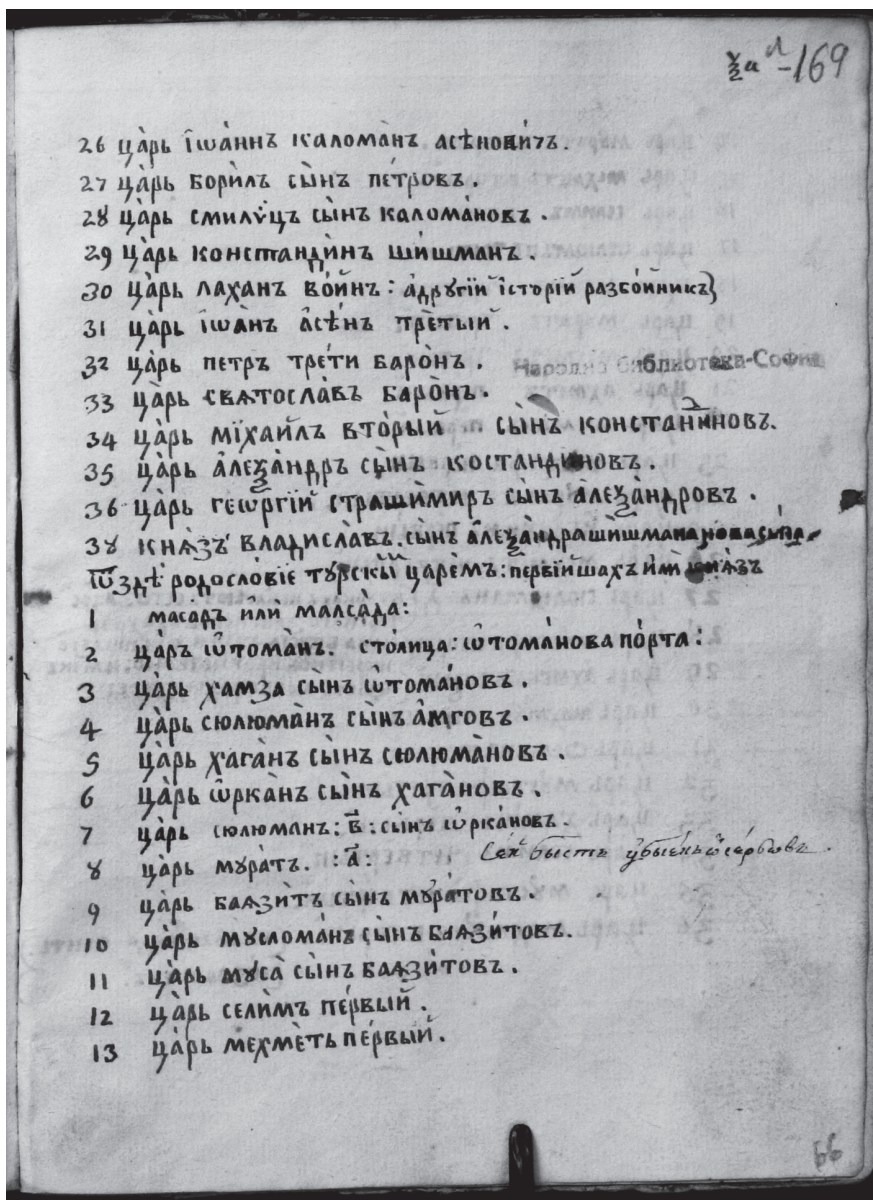 ѯа л-169
26 ца̀рь і҆ѡа́ннъ каломанъ асѣнови́чъ.
27 ца̀рь бори̇̀лъ сы̀нъ пе́тровъ.
28 ца̀рь смилѵ́цъ сы̀нъ калома́новъ.
29 ца̀рь констандѝнъ ши́шманъ.
30 ца̀рь лахан во́йнъ: а҆другі́й і҆сторі́й разбо́йникъ}
31 ца̀рь і҆ѡа̀нъ а҆сѣ́нъ тре́тый.
32 ца̀рь петръ тре́ти баро̀нъ.
Народна библиотека-София
33 ца̀рь свѧтосла̀въ баро̀нъ.
34 ца̀рь мїхаи́лъ вто́рый сы̀нъ константиновъ.
35 ца̀рь а҆леѯа́ндръ сы̀нъ костандиновъ.
36 ца̀рь геѡргі́й страши́миръ сы̀нъ а҆леѯа́ндровъ.
38 кнѧ́зъ владисла̀въ. сы̀нъ а҆леѯа́ндрашишмана
ѿздѣ̀ родосло́віе ту́рскы царе́мъ: первійшахъ и҆лѝ кнѧзъ
1 маса̀дъ и҆лѝ малса̀да:
2 ца̀ръ ѡ҆тома́нъ. столица: ѡ҆тома́нова по́рта:
3 ца̀рь хамза сы̀нъ ѡ҆тома́новъ.
4 ца̀рь сюлюма̀нъ сы̀нъ а҆мговъ.
5 ца̀рь хага̀нъ сы̀нъ сюлюма̀новъ.
6 ца̀рь ѡ҆рка̀нъ сы̀нъ хага̀новъ.
7 ца̀рь сюлюманъ: в҃: сы̀нъ ѡ҆рка́новъ.
8 ца̀рь мура̀тъ. :а҃: Сей бысть ꙋбыенъ ѿ сербовъ.
9 ца̀рь баѧзи̇̀тъ сы̀нъ мура́товъ.
10 ца̀рь муслома́нъ сы̀нъ баѧзи́товъ.
11 ца̀рь муса̀ сы̀нъ баѧзи́товъ.
12 ца̀рь сели̇̀мъ пе́рвый.
13 ца̀рь мехмѐть пе́рвый.
66